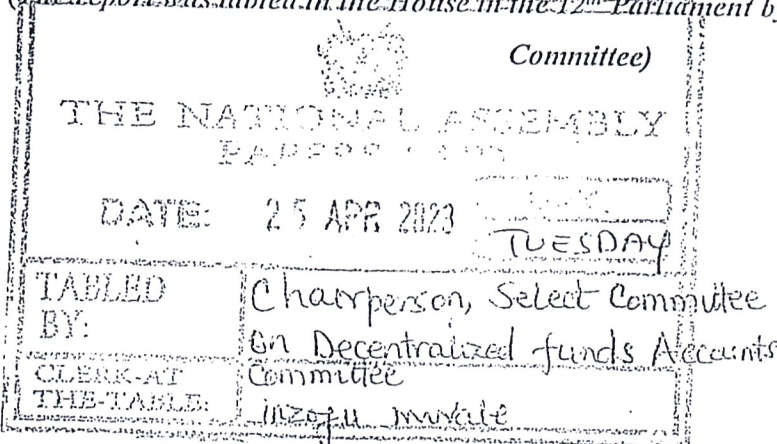 Report was tabled in the House in the 12th Parliament by
Committee)
THE NATIONAL ASSEMBLY
DATE: 25 APR 2023
TUESDAY
TABLED BY: Chairperson, Select Committee
on Decentralized funds Accounts
Committee
CLERK-AT THE-TABLE: